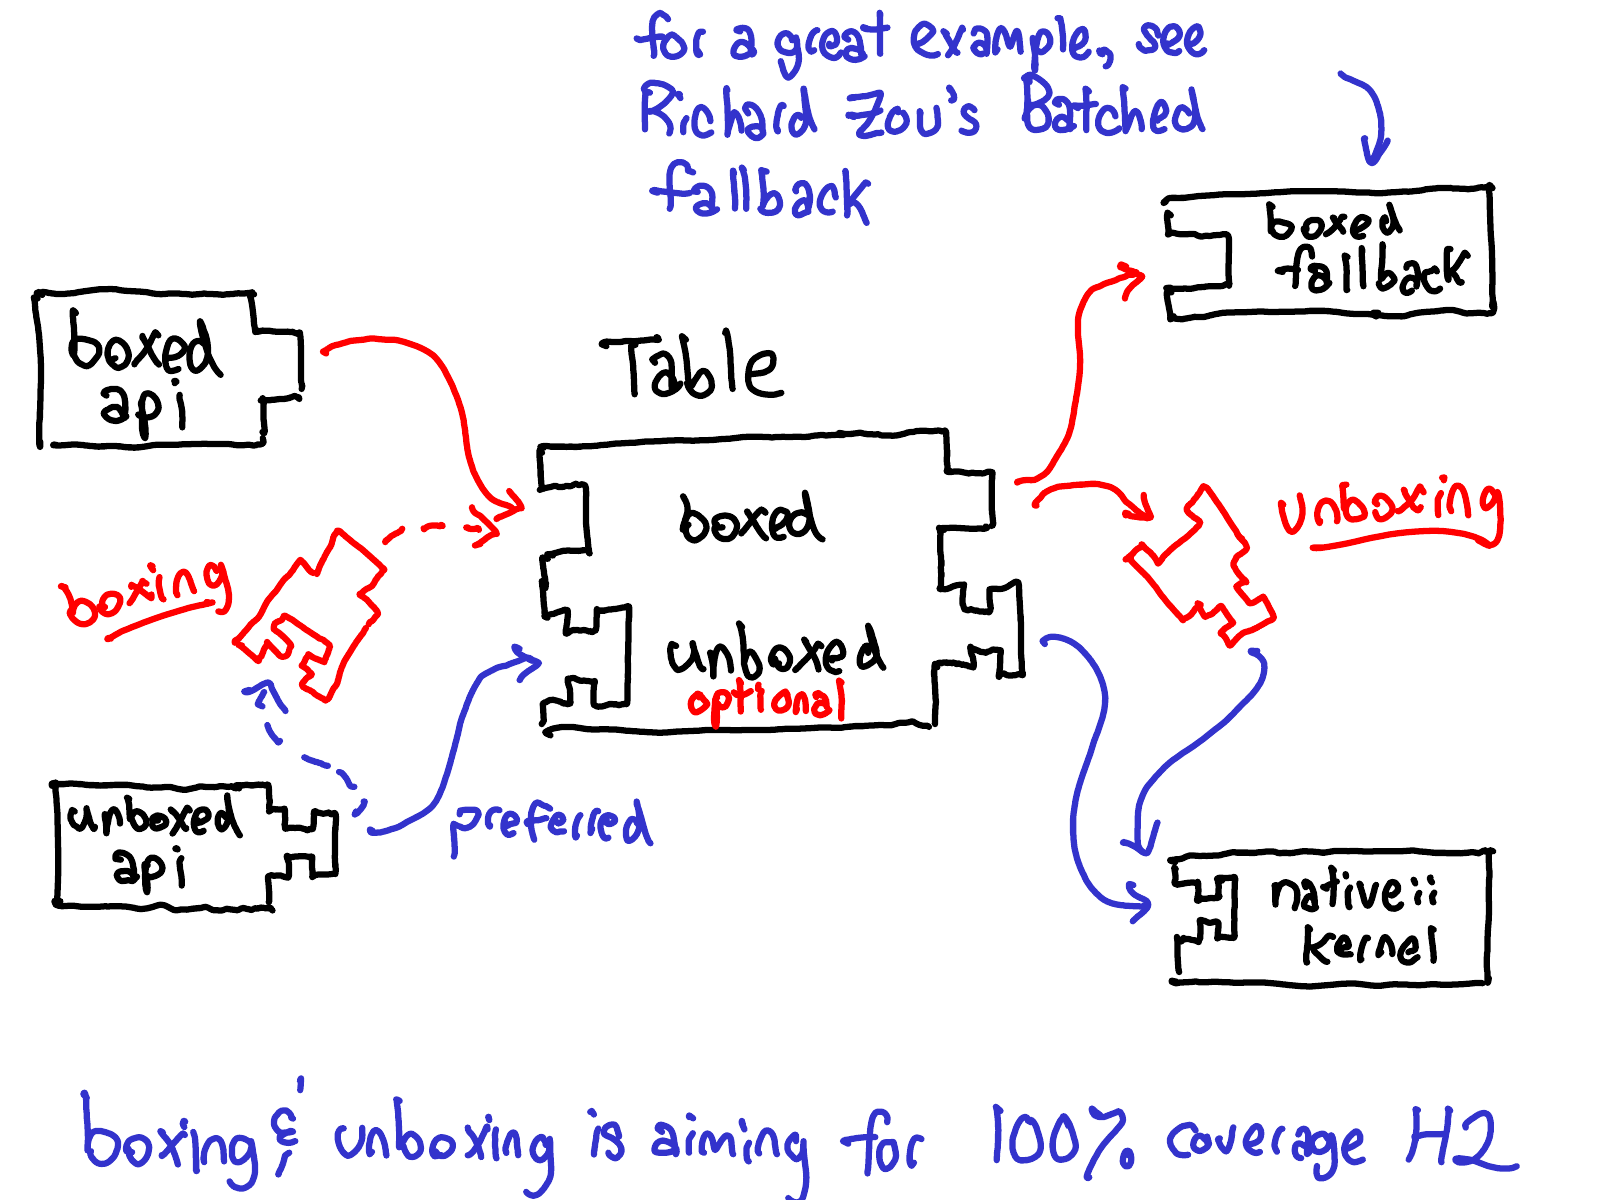 for a great example, see
Richard Zou's Batched
fallback
boxed
fallback
boxed
api
Table
boxed
unboxing
boxing
unboxed
optional
unboxed
api
preferred
native::
kernel
boxing & unboxing is aiming for 100% coverage H2